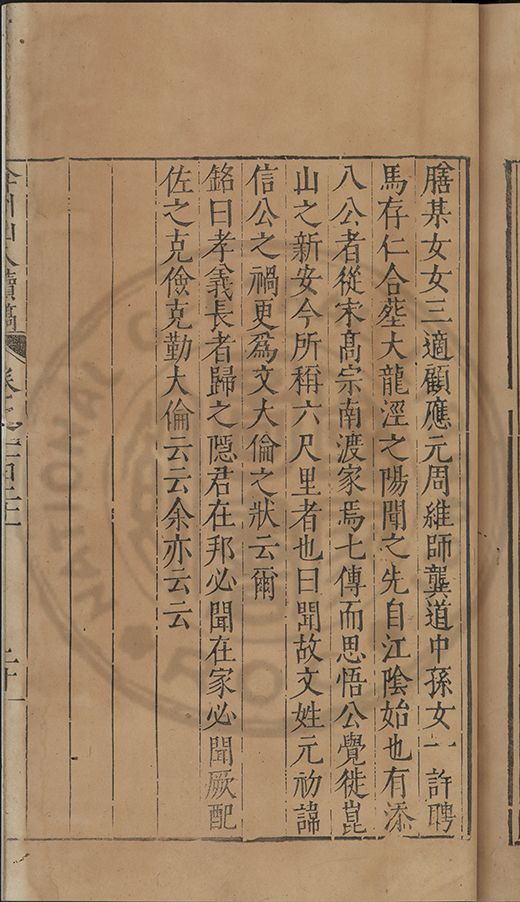 膳某女女三適顧應元周維師龔道中孫女一許聘
馬存仁合塟大龍涇之陽聞之先自江陰始也有添
八公者從宋高宗南渡家焉七傳而思悟公覺徙崑
山之新安今所稱六尺里者也曰聞故文姓元初諱
信公之禍更爲文大倫之狀云爾
銘曰孝義長者歸之隱君在邦必聞在家必聞厥配
佐之克儉克勤大倫云云余亦云云
山人續稿
卷之一百